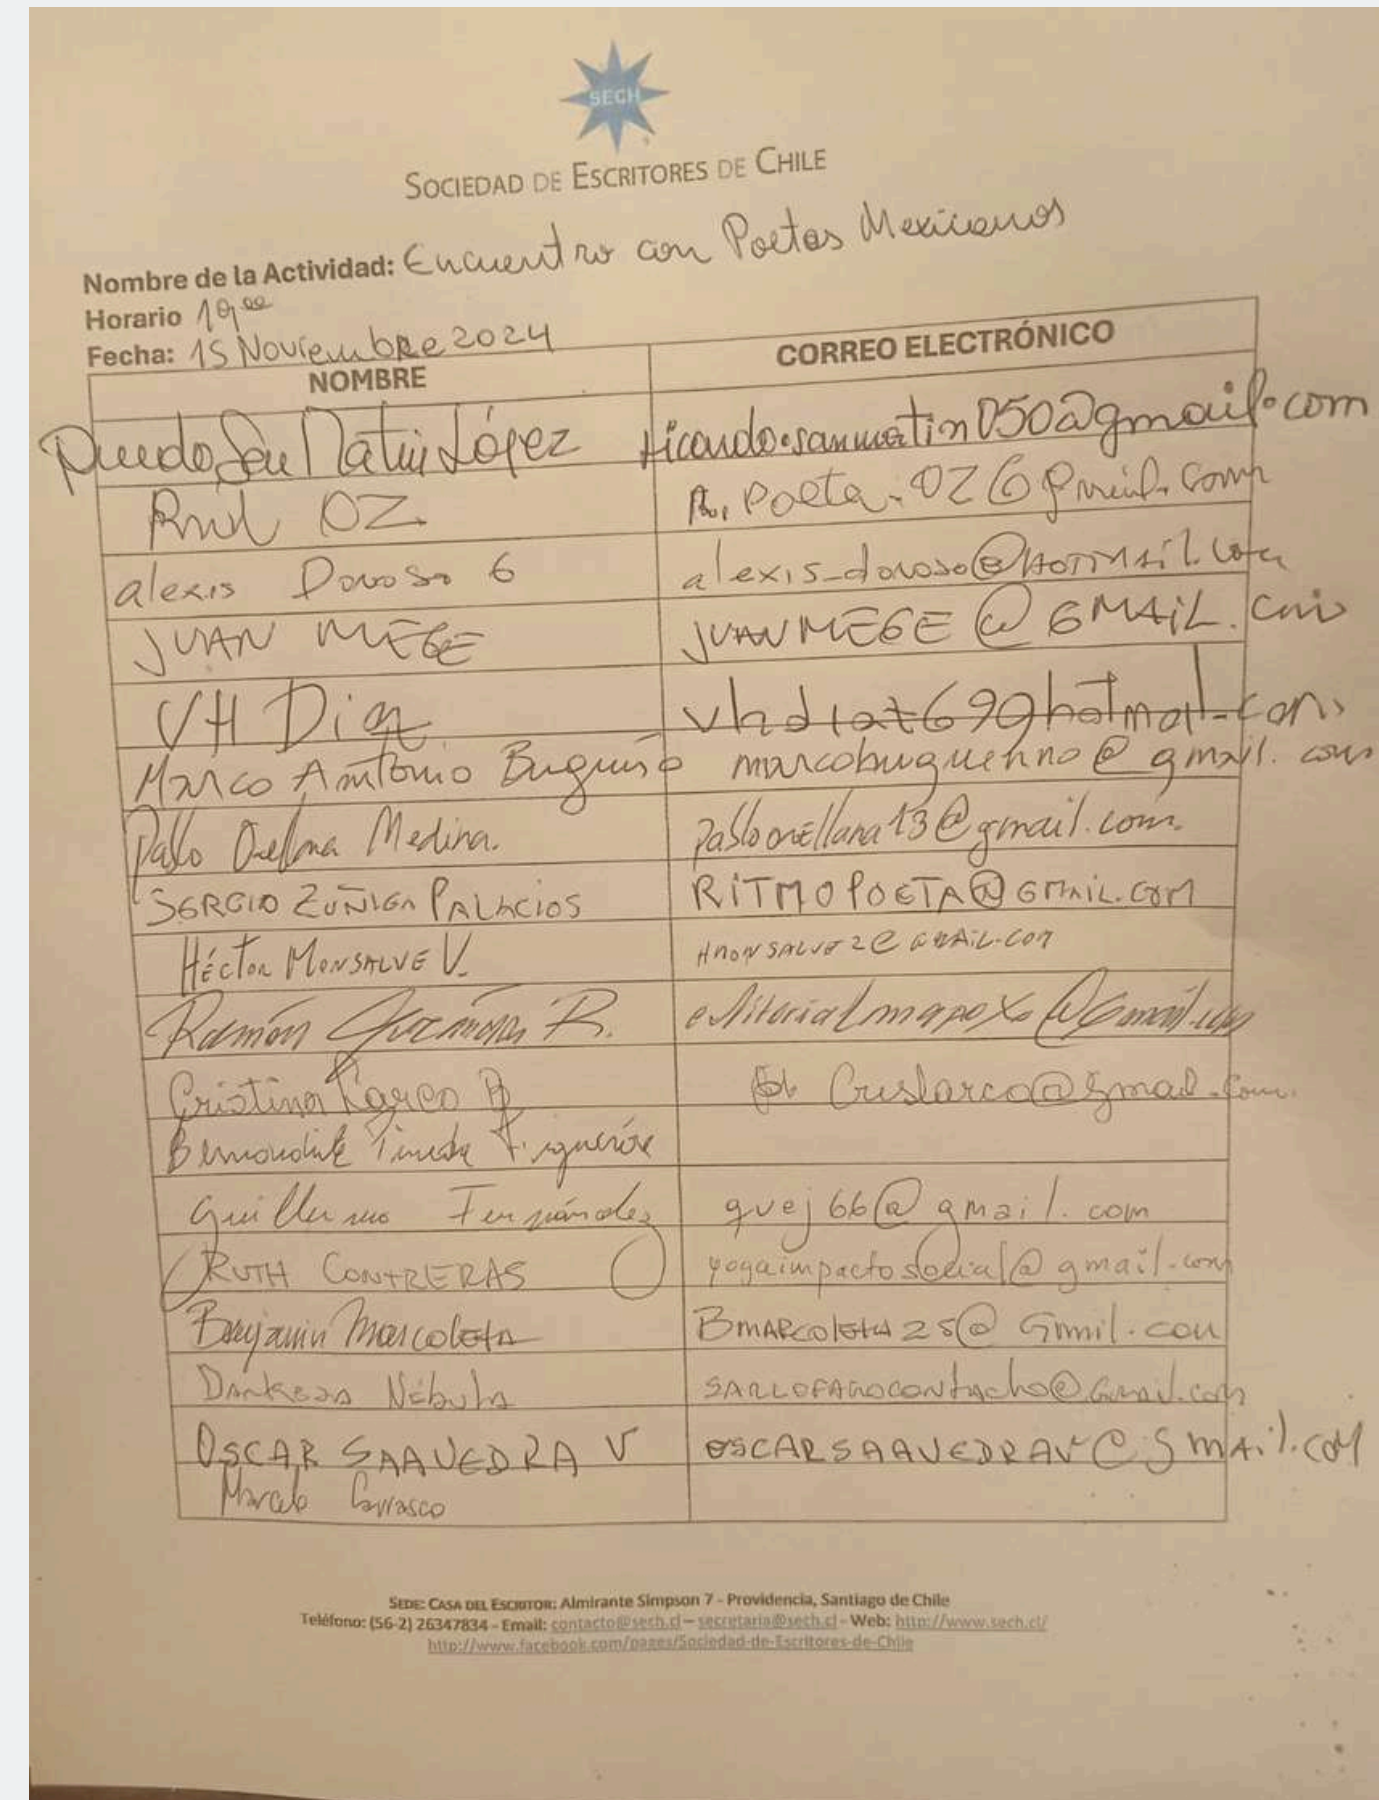 SECH
SOCIEDAD DE ESCRITORES DE CHILE
Nombre de la Actividad: Encuentro con Poetas Mexicanos
Horario 19,00
Fecha: 15 Noviembre 2024
NOMBRE CORREO ELECTRÓNICO
López ricardo.sanmartin050@gmail.com
OZ
alexis Donoso G alexis_donoso@HOTMAIL.com
JUAN MEGE JUANMEGE@GMAIL.com
VH Diaz
Marco Antonio Bugueño marcobuguenno@gmail.com
Pablo Orellana Medina. pabloorellana13@gmail.com.
SERGIO ZUÑIGA PALACIOS RITMOPOETA@GMAIL.COM
Héctor MONSALVE V. HMONSALVE2@GMAIL.COM
Ramón R.
Cristina Larco B Crislarco@gmail.com.
Guillermo Fernández guej66@gmail.com
RUTH CONTRERAS yogaimpactosocial@gmail.com
Benjamin Marcoleta BMARCOlEtA25@Gmail.com
OSCAR SAAVEDRA V OSCARSAAVEDRAV@gmAil.com
Marcelo Carrasco
SEDE: CASA DEL ESCRITOR: Almirante Simpson 7 - Providencia, Santiago de Chile
Teléfono: (56-2) 26347834 - Email: contacto@sech.cl – secretaria@sech.cl - Web: http://www.sech.cl/
http://www.facebook.com/pages/Sociedad-de-Escritores-de-Chile